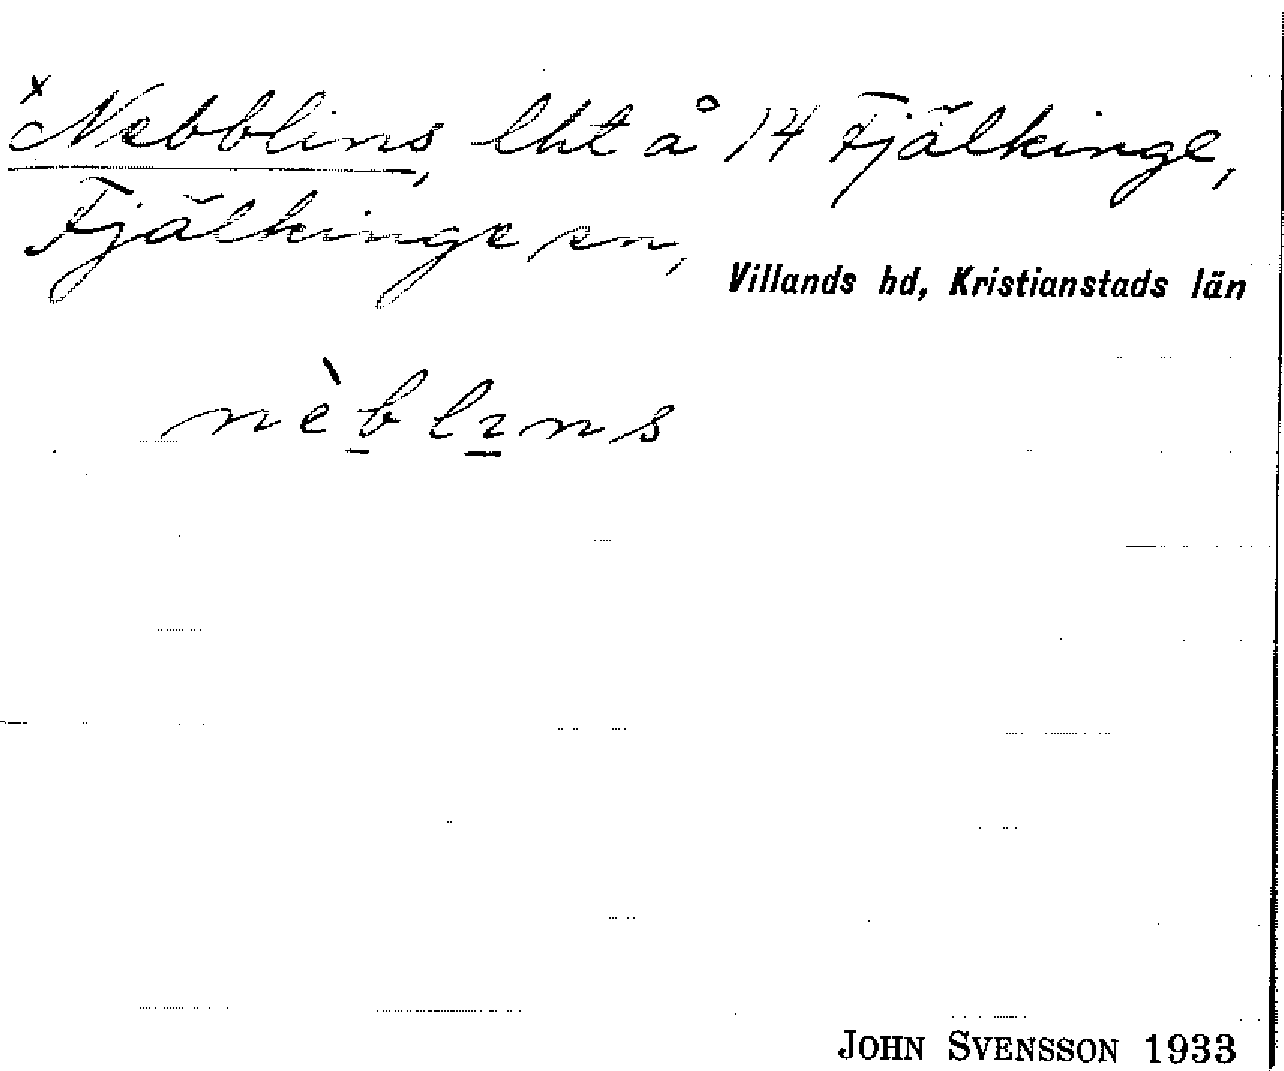 x Nebblins, lht å 14 Fjälkinge,
Fjälkinge sn,
Villands hd, Kristianstads län
nèblıns
JOHN SVENSSON 1933